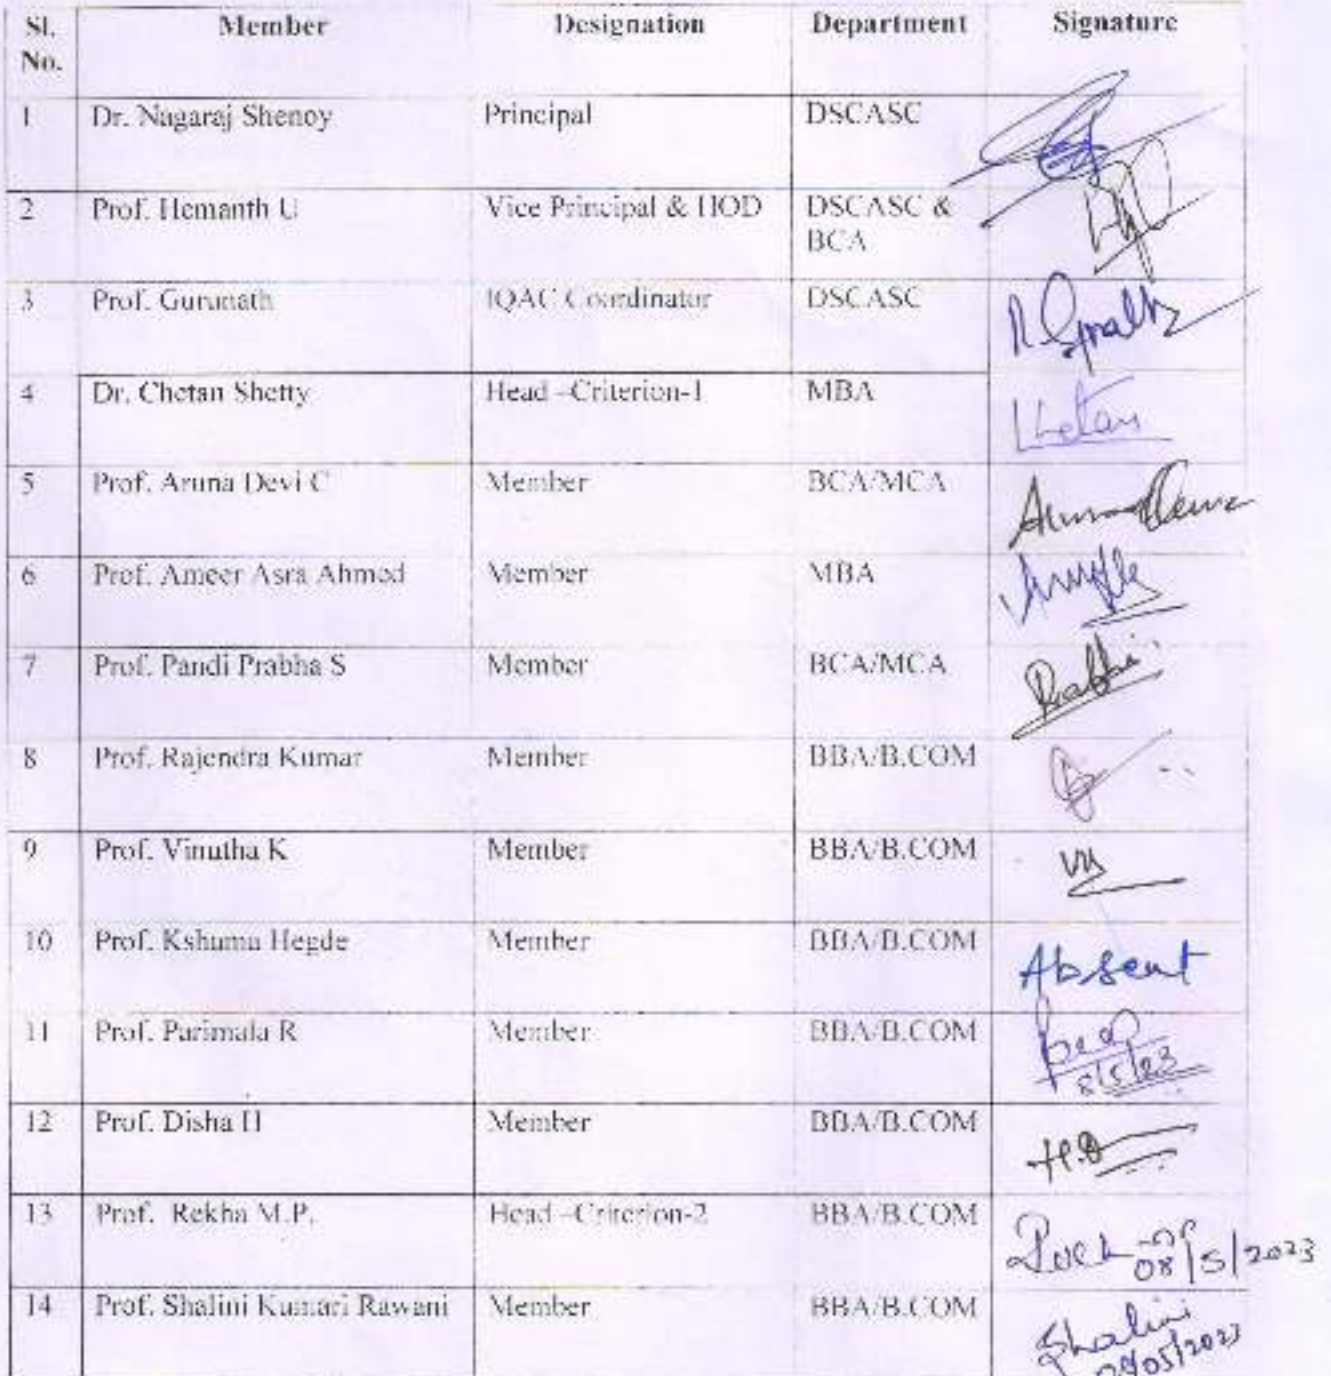 Sl. No. Member Designation Department Signature
1 Dr. Nagaraj Shenoy Principal DSCASC
2 Prof. Hemanth U Vice Principal & HOD DSCASC & BCA
3 Prof. Gurunath IQAC Coordinator DSCASC
4 Dr. Chetan Shetty Head –Criterion-1 MBA Chetan
5 Prof. Aruna Devi C Member BCA/MCA
6 Prof. Ameer Asra Ahmed Member MBA
7 Prof. Pandi Prabha S Member BCA/MCA Prabha
8 Prof. Rajendra Kumar Member BBA/B.COM
9 Prof. Vinutha K Member BBA/B.COM
10 Prof. Kshama Hegde Member BBA/B.COM Absent
11 Prof. Parimala R Member BBA/B.COM 8/5/23
12 Prof. Disha H Member BBA/B.COM
13 Prof. Rekha M.P. Head –Criterion-2 BBA/B.COM 08/5/2023
14 Prof. Shalini Kumari Rawani Member BBA/B.COM Shalini
08/05/2023